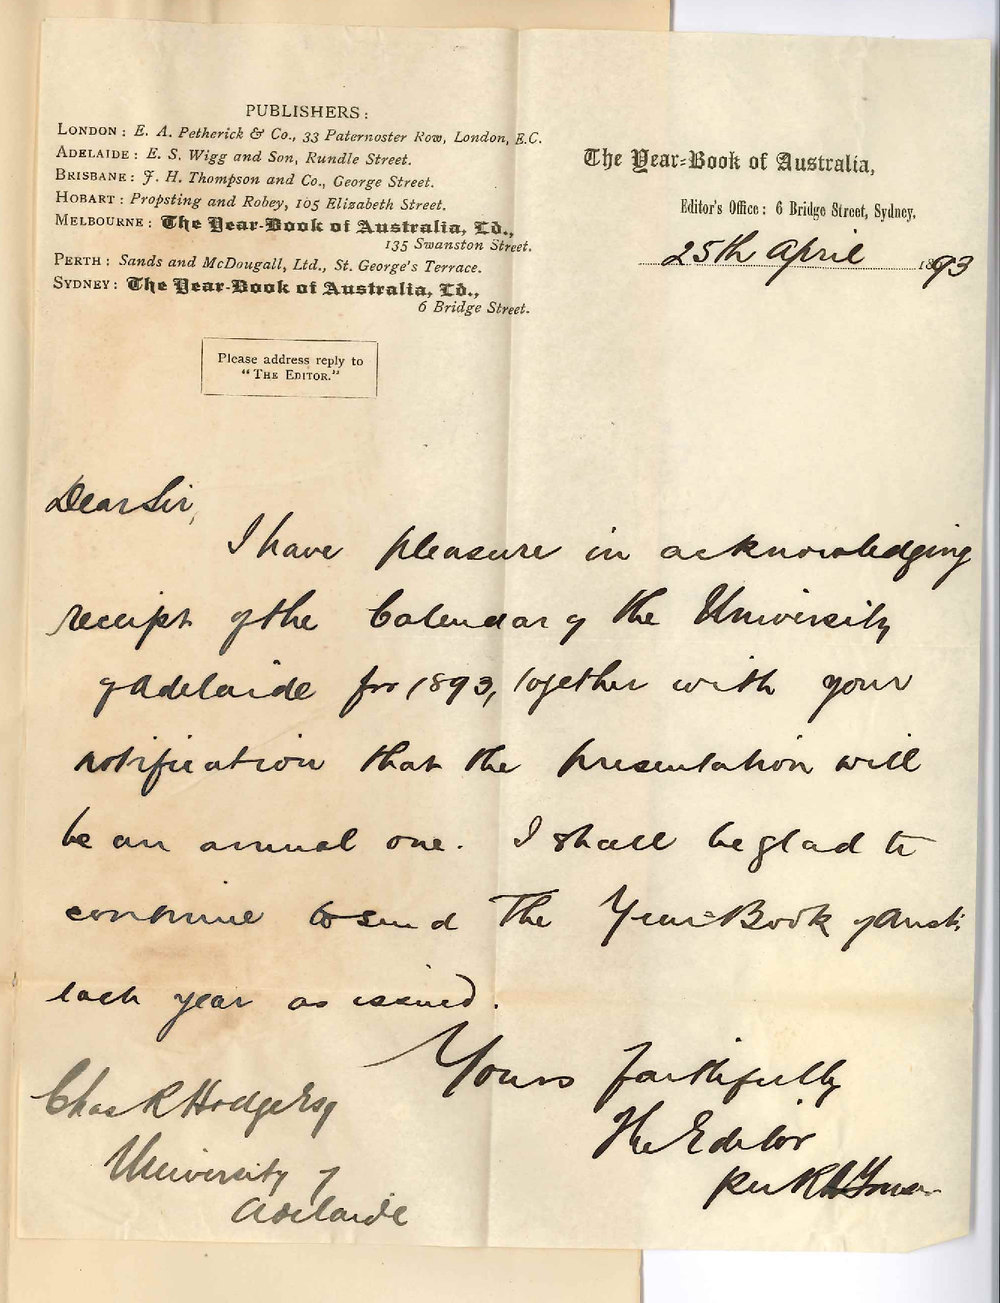 PUBLISHERS:
LONDON: E. A. Petherick & Co., 33 Paternoster Row, London, E.C.
ADELAIDE: E. S. Wigg and Son, Rundle Street.
BRISBANE: J. H. Thompson and Co., George Street.
HOBART: Propsting and Robey, 105 Elizabeth Street.
MELBOURNE: The Year-Book of Australia, Ld.,
135 Swanston Street.
PERTH: Sands and McDougall, Ltd., St. George's Terrace.
SYDNEY: The Year-Book of Australia, Ld.,
6 Bridge Street.
Please address reply to
"THE EDITOR."
The Year-Book of Australia,
Editor's Office: 6 Bridge Street, Sydney.
25th April 1893
Dear Sir,
I have pleasure in acknowledging
receipt of the Calendar of the University
of Adelaide for 1893, together with your
notification that the presentation will
be an annual one. I shall be glad to
continue to send The Year-Book of Aust:
each year as issued.
Yours faithfully
The Editor
per
Chas R Hodge Esq
University of
Adelaide